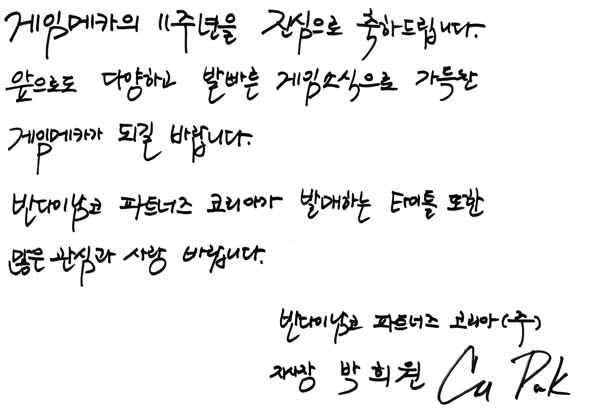 게임메카의 11주년을 진심으로 축하드립니다.
앞으로도 다양하고 발빠른 게임소식으로 가득한
게임메카가 되길 바랍니다.
반다이남코 파트너즈 코리아가 발매하는 타이틀 또한
많은 관심과 사랑 바랍니다.
반다이남코 파트너즈 코리아(주)
지사장 박희원 Cu Park